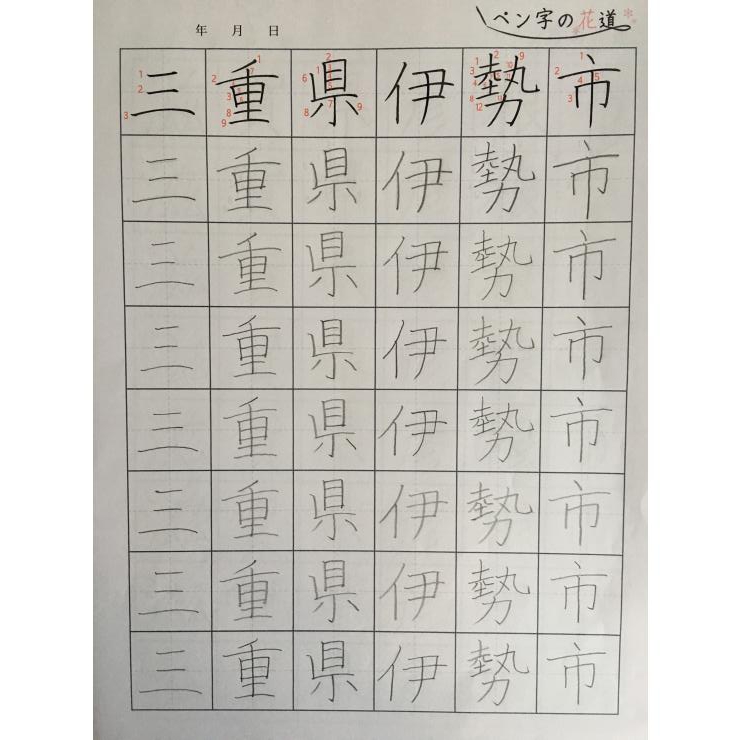 ペン字の花道
年 月 日
三重県伊勢市
三重県伊勢市
三重県伊勢市
三重県伊勢市
三重県伊勢市
三重県伊勢市
三重県伊勢市
三重県伊勢市